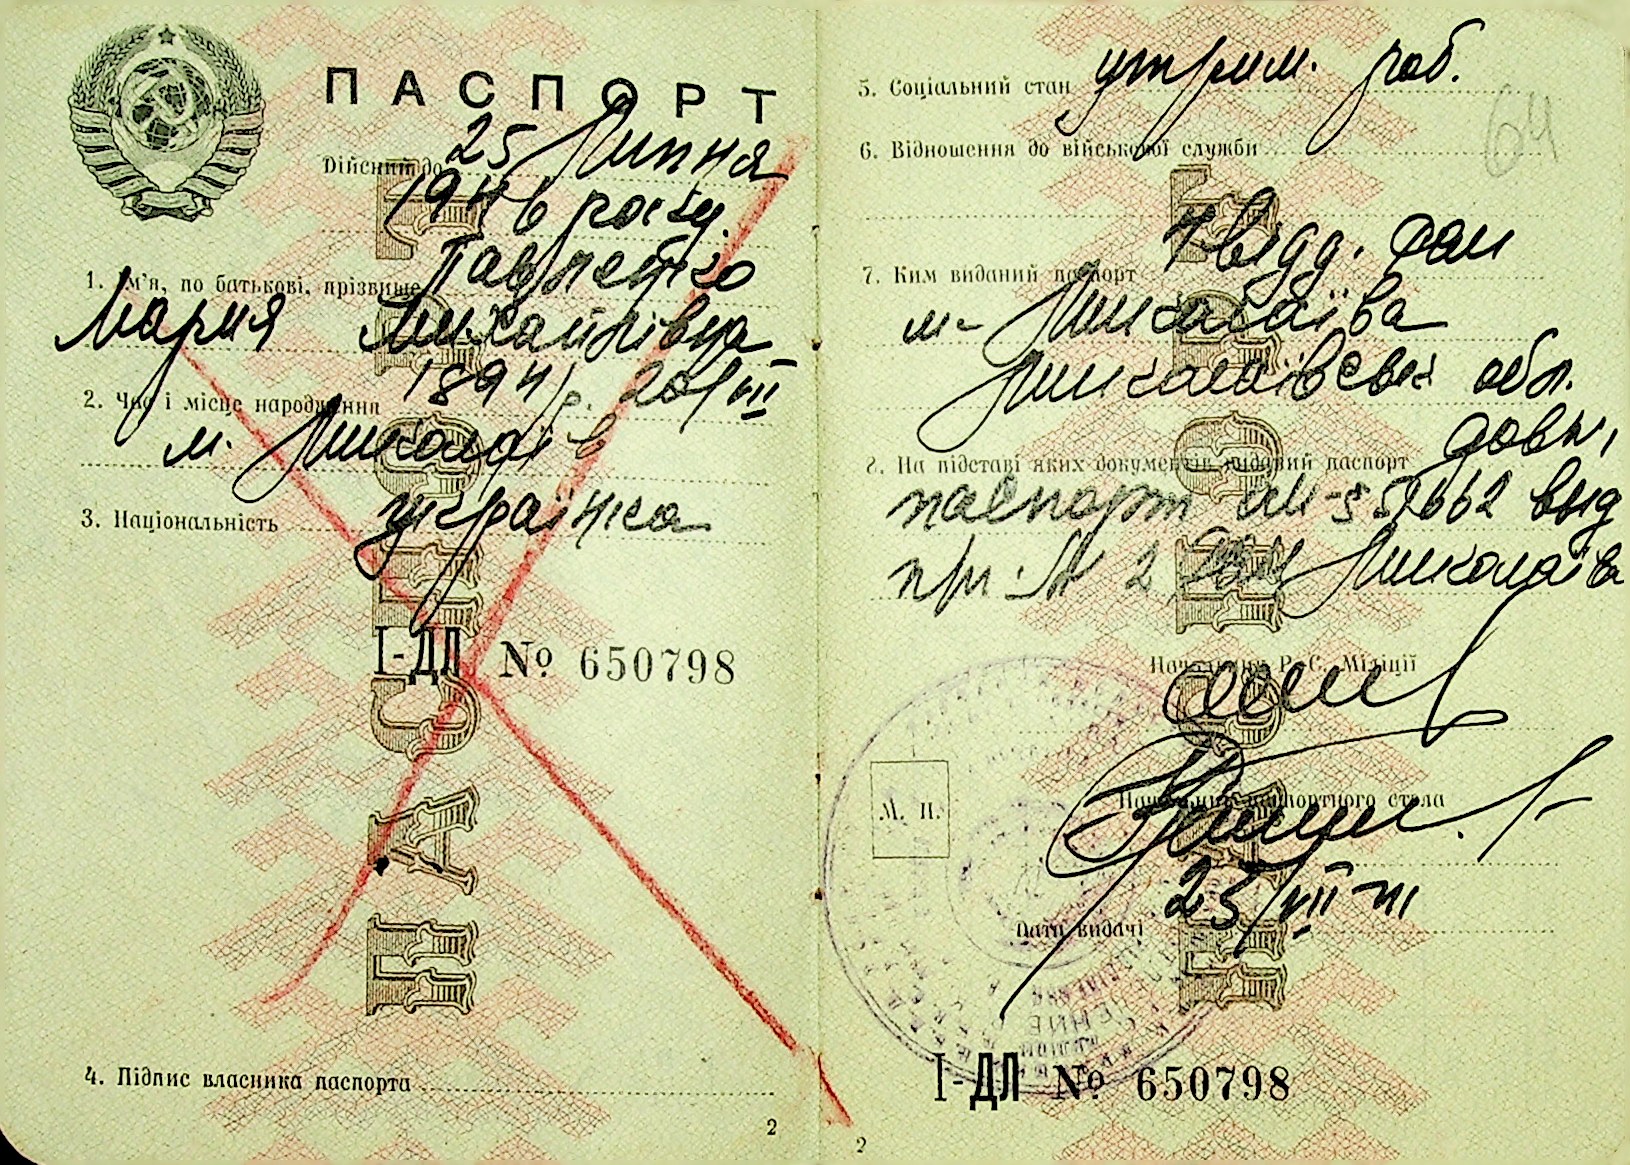 ПАСПОРТ
Дійсний до 25 Липня
1946 року.
1. Ім'я, по батькові, прізвище Павленко
Мария Михайлівна
2. Час і місце народження 1894 р. 20/VII
м. Миколаїв
3. Національність українка
І-ДЛ № 650798
4. Підпис власника паспорта
2
5. Соціальний стан утрим. роб.
64
6. Відношення до військової служби
7. Ким виданий паспорт 4 відд.
м. Миколаїва
Миколаївськ обл.
8. На підставі яких документів виданий паспорт
паспорт вид
2 Миколаїва
Начальник Р.-С. Міліції
М. П.
Начальник паспортного стола
Дата видачі 25/VII
І-ДЛ № 650798
2
ПАСПОРТ
ПАСПОРТ